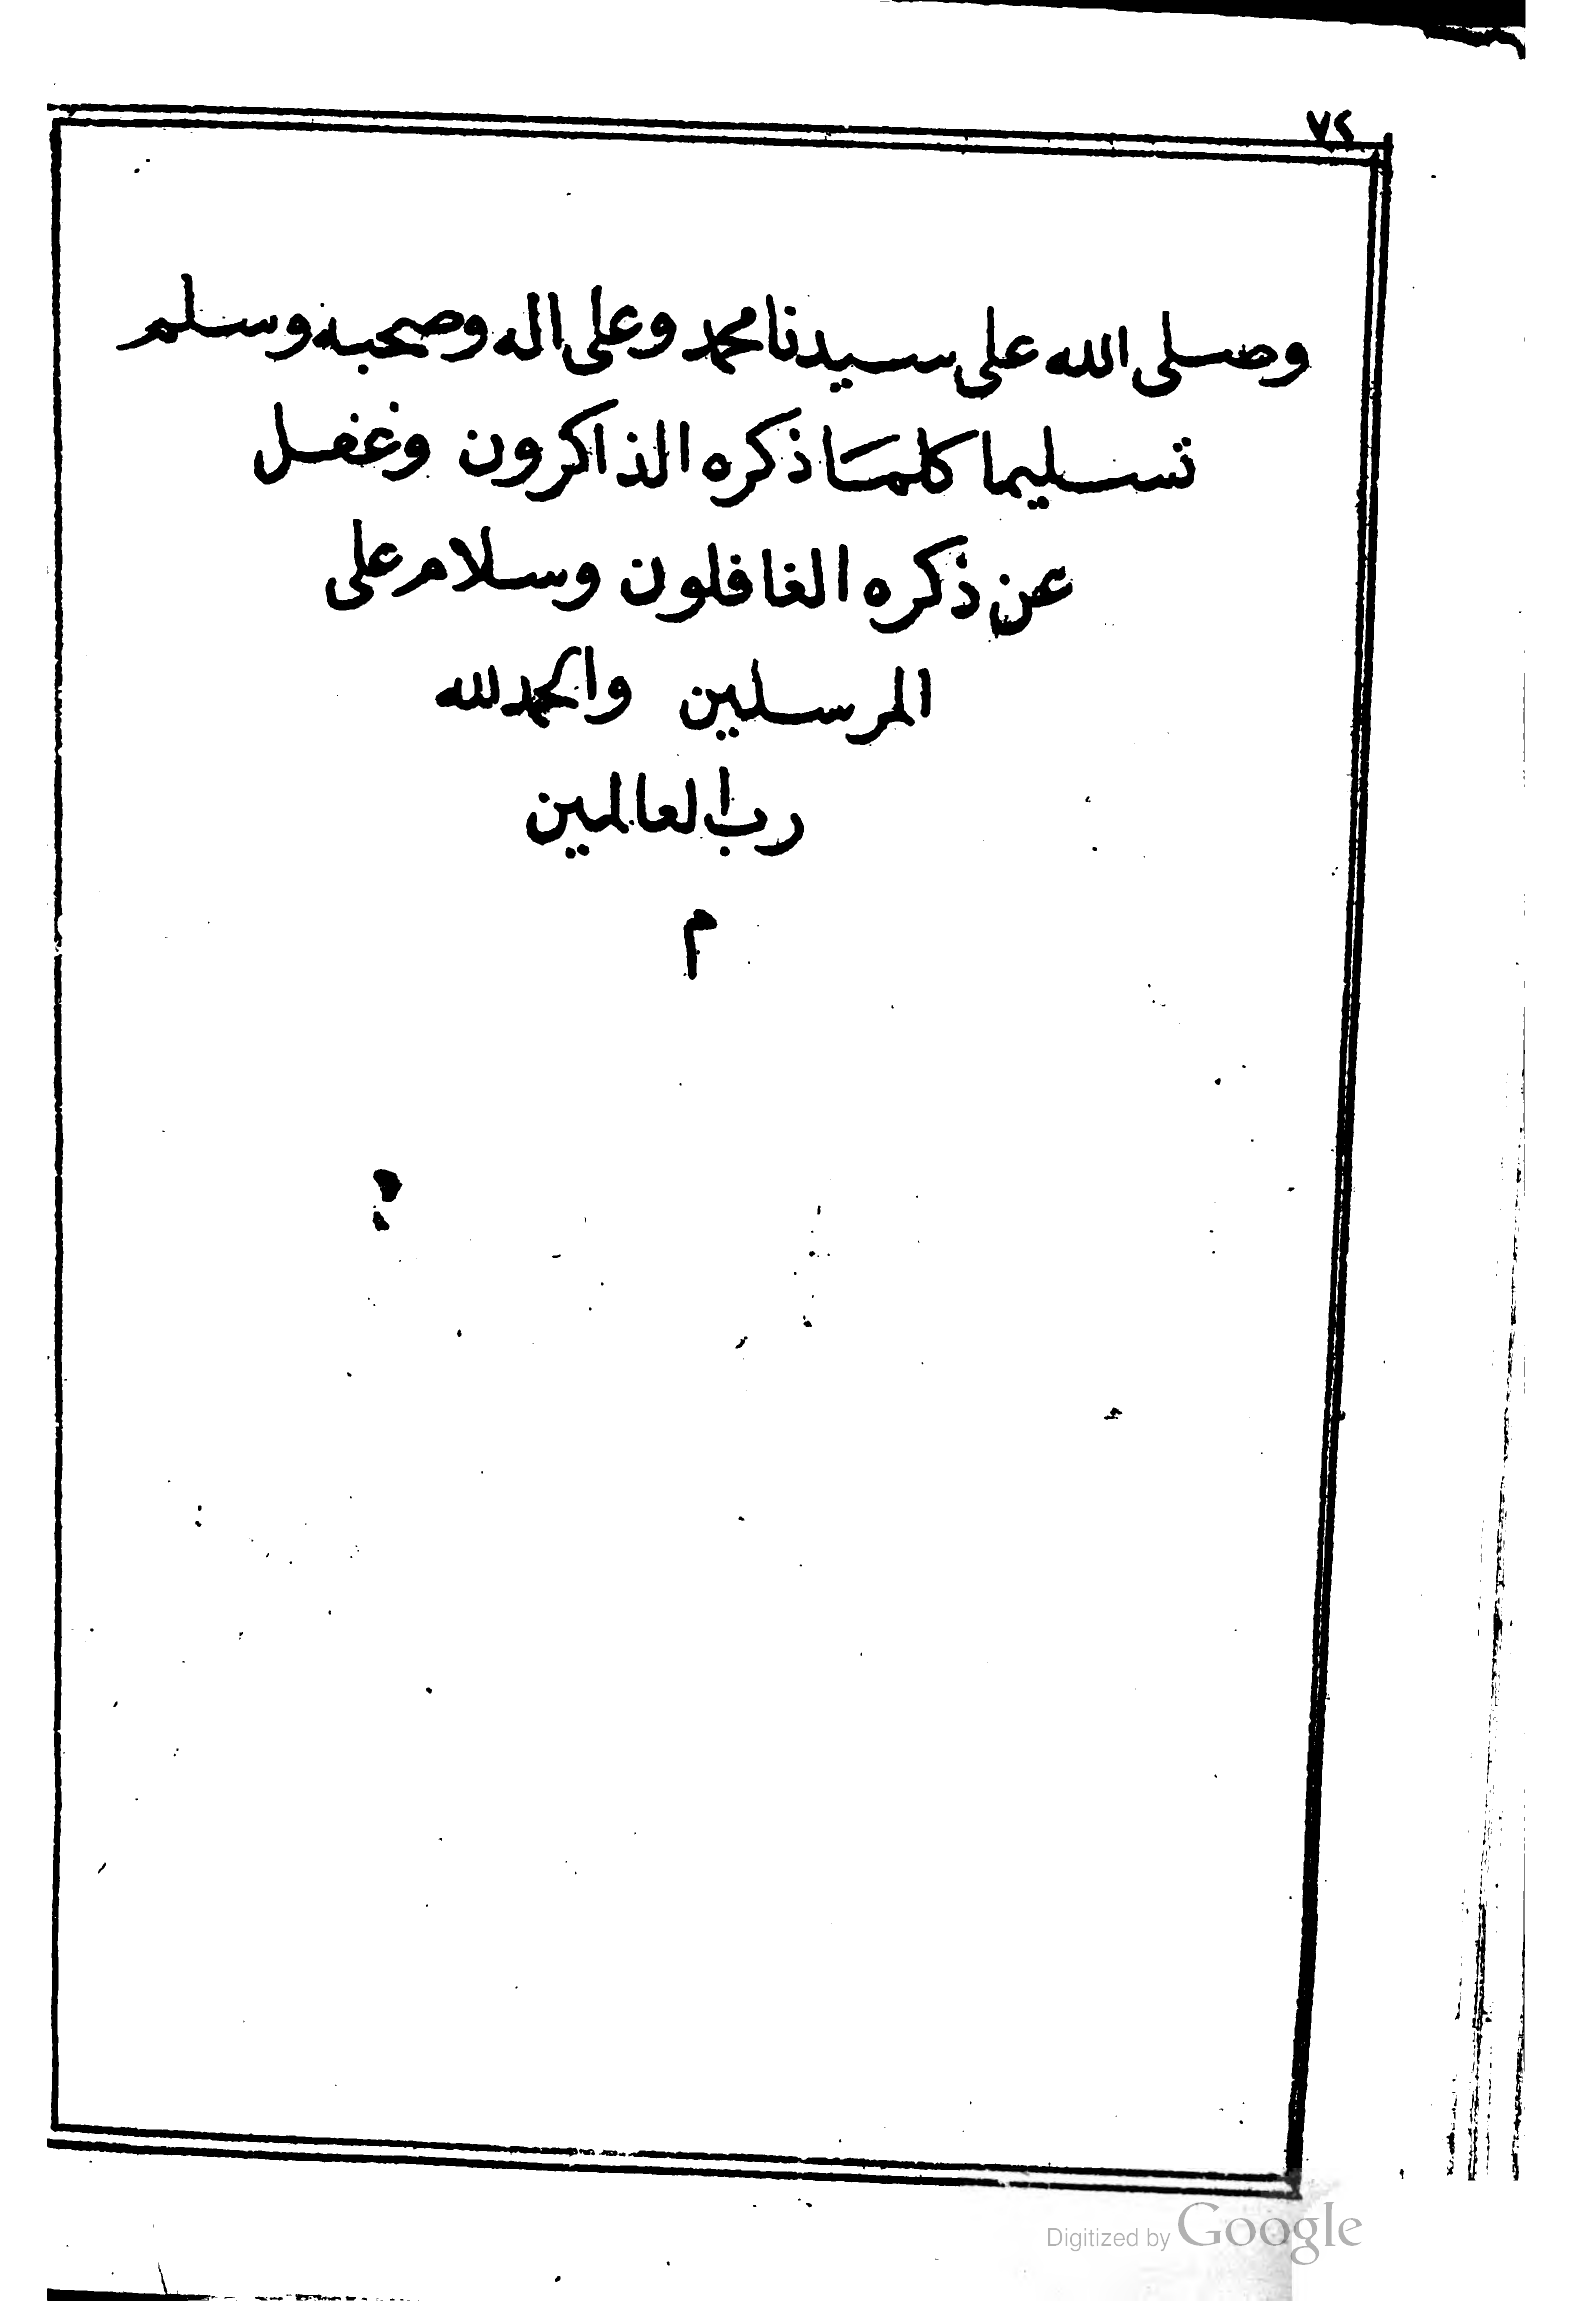 ٧٤
وصلى الله على سيدنا محمد وعلى اله وصحبه وسلم
تسليما كلما ذكره الذاكرون وغفل
عن ذكره الغافلون وسلام على
المرسلين والحمد لله
رب العالمين
م
Digitized by Google